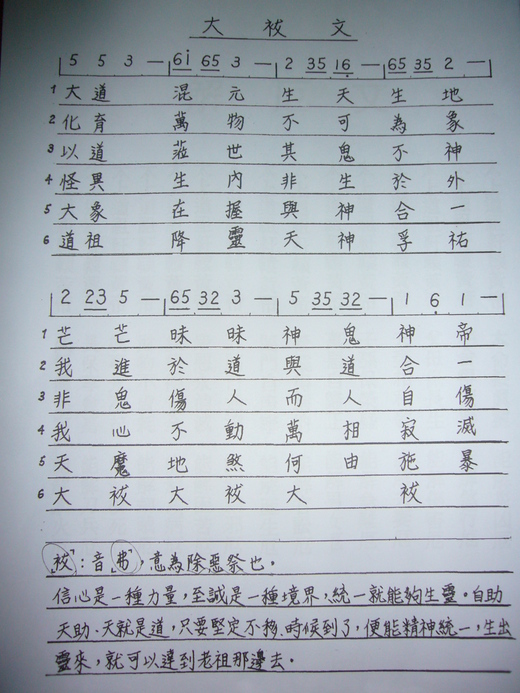 大祓文
5 5 3 — 6i 65 3 — 2 35 16 — 65 35 2 —
1 大道 混元 生天生地
2 化育 萬物 不可為象
3 以道 蒞世 其鬼不神
4 怪異 生內 非生於外
5 大象 在握 與神合一
6 道祖 降靈 天神孚祐
2 23 5 — 65 32 3 — 5 35 32 — 1 6 1 —
1 芒芒昧昧 神鬼神帝
2 我進於道 與道合一
3 非鬼傷人 而人自傷
4 我心不動 萬相寂滅
5 天魔地煞 何由施暴
6 大祓大祓大 祓
「祓」:音「弗」,意為除惡祭也。
信心是一種力量,至誠是一種境界,統一就能夠生靈。自助
天助、天就是道,只要堅定不移、時候到了,便能精神統一,生出
靈來,就可以達到老祖那邊去。